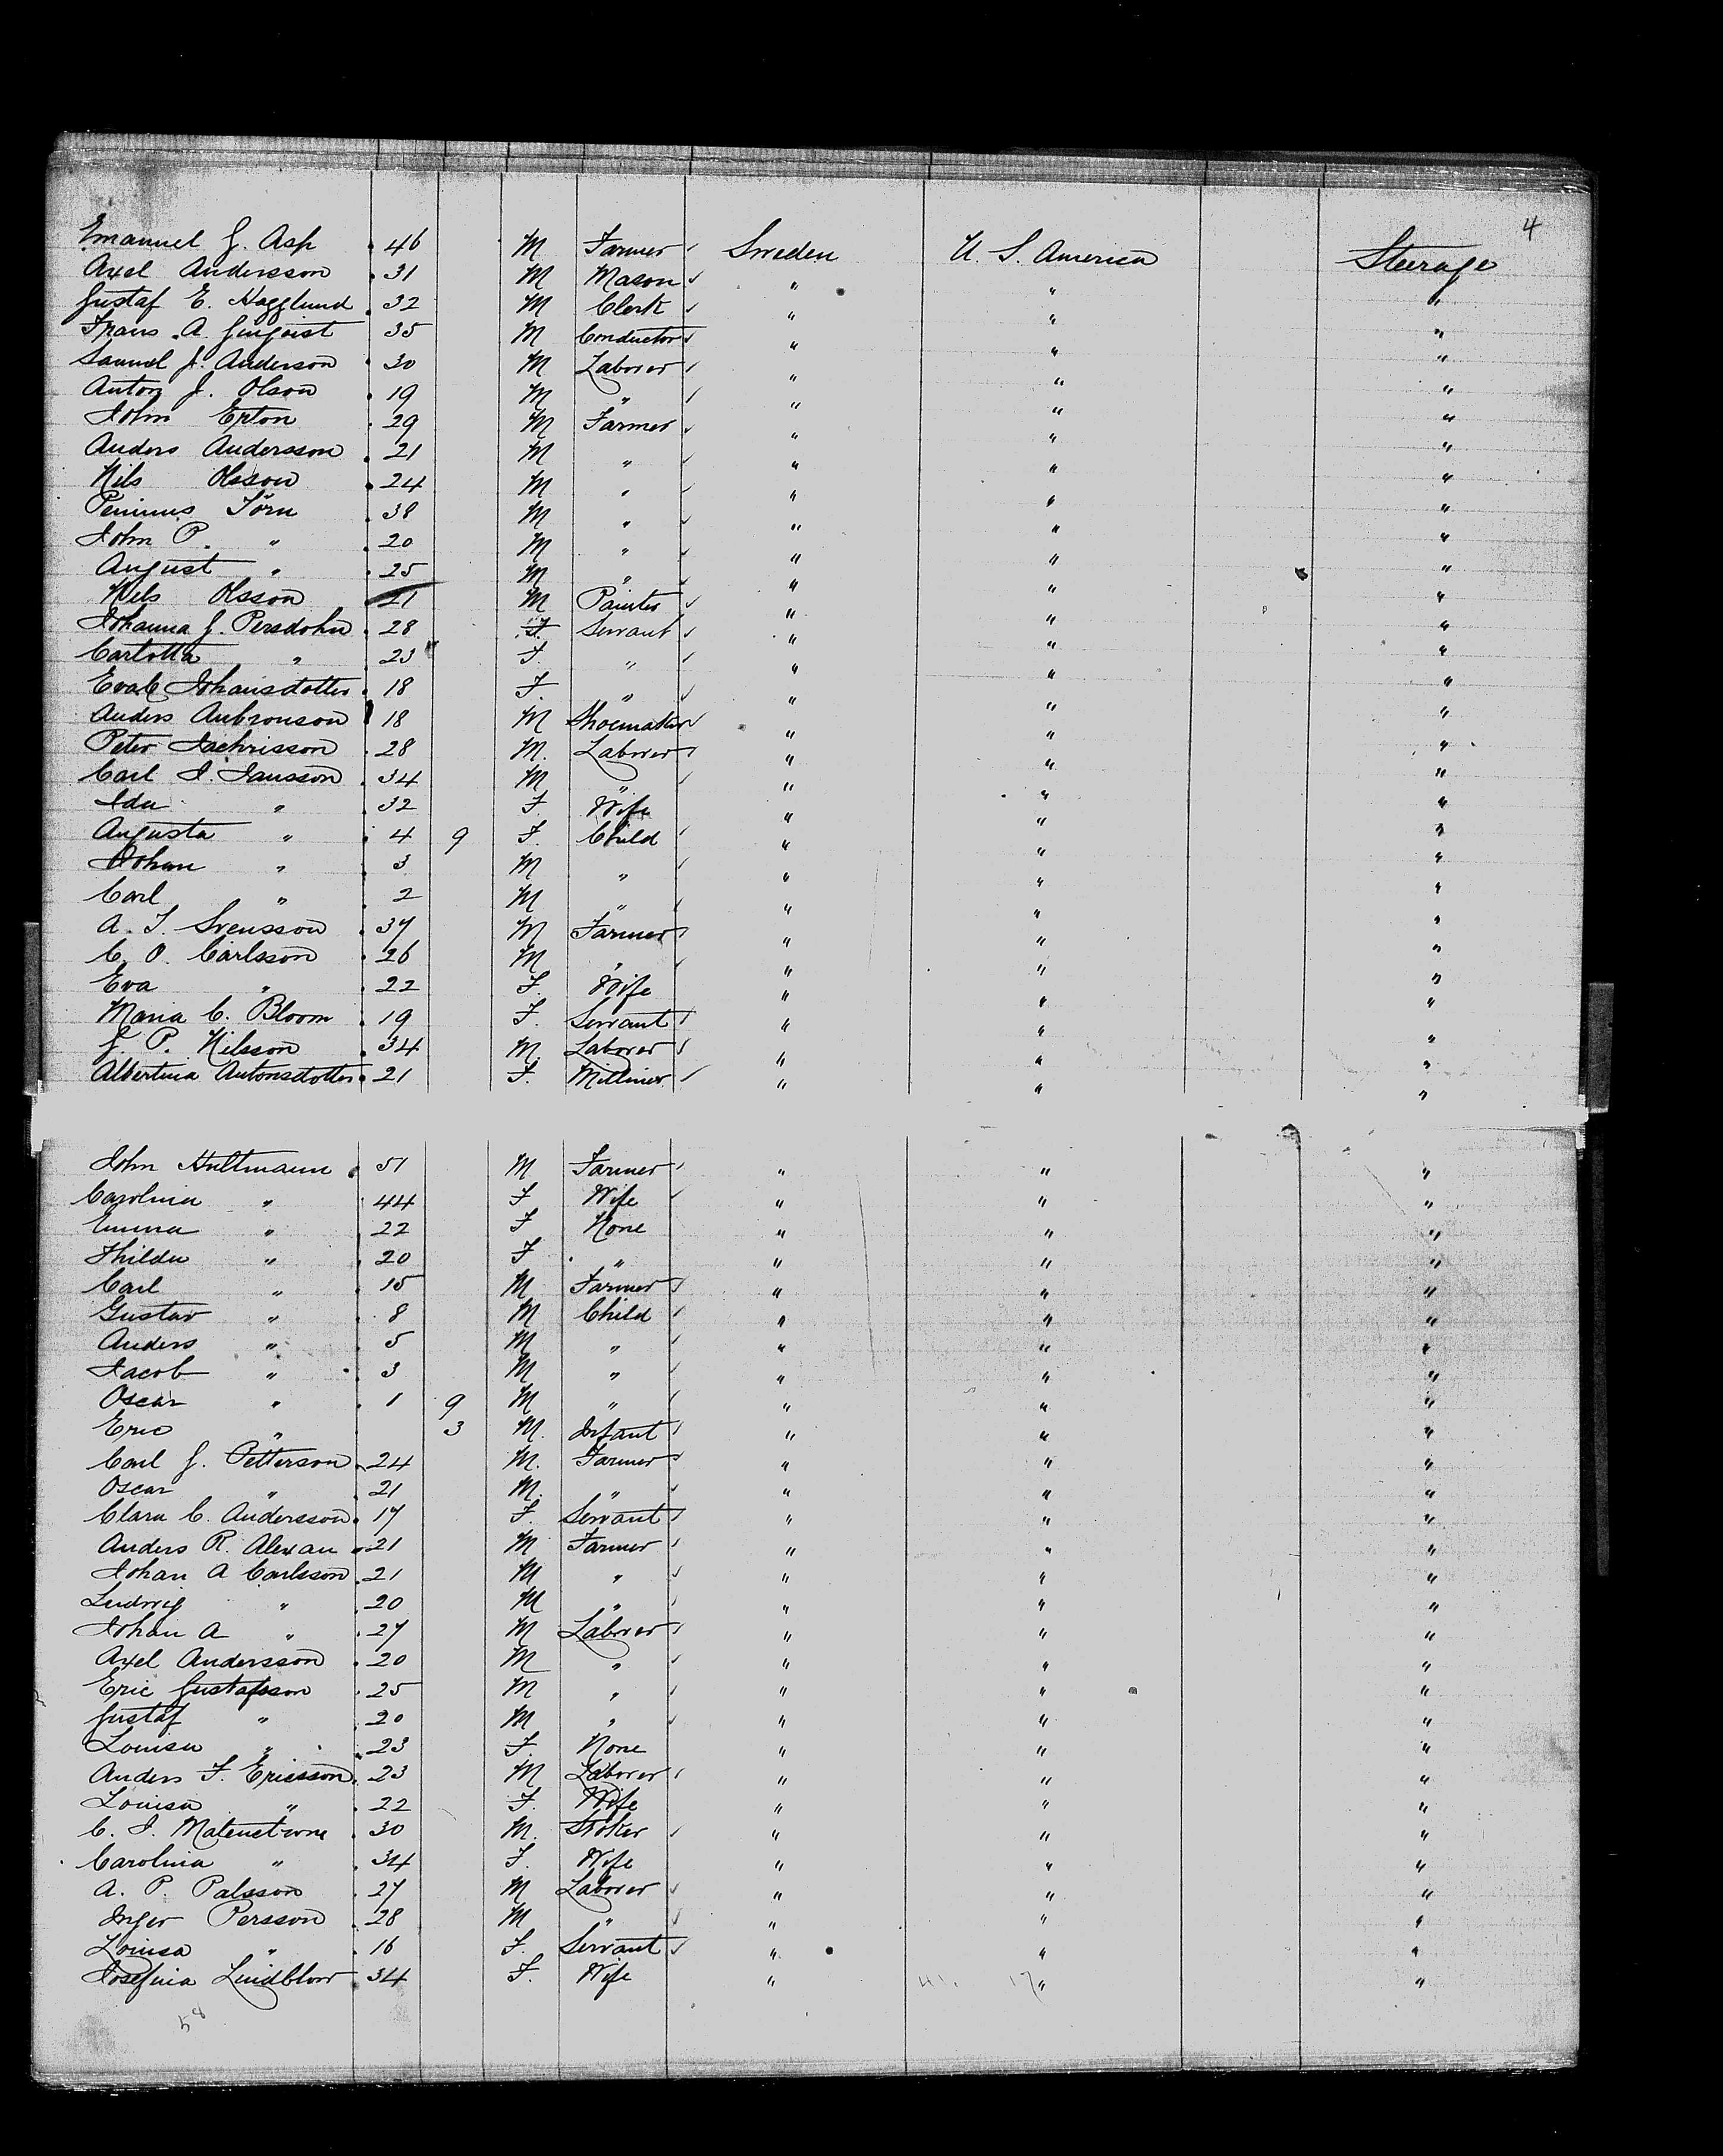 4
Emanuel G. Asp 46 M Farmer Sweden U. S. America Steerage
Axel Andersson 31 M Mason " " "
Gustaf E. Hagglund 32 M Clerk " " "
Frans A. 35 M Conductor " " "
Samuel J. Anderson 30 M Laborer " " "
Anton J. Olson 19 M " " " "
John Epton 29 M Farmer " " "
Anders Andersson 21 M " " " "
Nils Olsson 24 M " " " "
Törn 38 M " " " "
John P. " 20 M " " " "
August " 25 M " " " "
Nels Olsson 21 M Painter " " "
Johanna G. Persdohn 28 F. Servant " " "
Carlotta " 23 F. " " " "
Eva C Johansdotter 18 F. " " " "
Anders 18 M Shoemaker " " "
Peter 28 M. Laborer " " "
Carl J. Jansson 34 M " " " "
Ida " 32 F Wife " " "
Augusta " 4 9 F. Child " " "
Johan " 3 M " " " "
Carl " 2 M " " " "
A. J. Svensson 37 M Farmer " " "
C. O. Carlsson 26 M " " " "
Eva " 22 F. Wife " " "
Maria C. Bloom 19 F. Servant " " "
G. P. Nilsson 34 M. Laborer " " "
Albertina Antonsdotter 21 F. Milliner " " "
John Hultmann 51 M Farmer " " "
Carolina " 44 F Wife " " "
Emma " 22 F None " " "
Thilda " 20 F " " " "
Carl " 15 M Farmer " " "
Gustav " 8 M Child " " "
Anders " 5 M " " " "
Jacob " 3 M " " " "
Oscar " 1 9 M " " " "
Eric " 3 M. Infant " " "
Carl G. Petterson 24 M. Farmer " " "
Oscar " 21 M. " " " "
Clara C. Andersson 17 F. Servant " " "
Anders R. Alexan 21 M Farmer " " "
Johan A Carlsson 21 M " " " "
Ludwig " 20 M " " " "
Johan A " 27 M Laborer " " "
Axel Andersson 20 M " " " "
Eric Gustafsson 25 M " " " "
Gustaf " 20 M " " " "
Louisa " 23 F. None " " "
Anders F. Ericsson 23 M Laborer " " "
Louisa " 22 F. Wife " " "
C. J. 30 M. Stoker " " "
Carolina " 34 F. Wife " " "
A. P. Palsson 27 M Laborer " " "
Inger Persson 28 M " " " "
Louisa " 16 F. Servant " " "
Josefina Lindblom 34 F. Wife " " "
41. 17
58